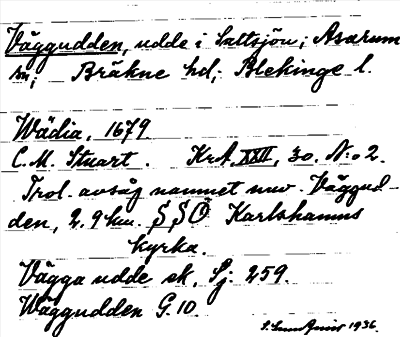 Väggudden, udde i Saltsjön; Asarum
sn; Bräkne hd; Blekinge l.
Wädia, 1679
C.M. Stuart. KrA, XXII, 30. N:o 2.
Trol. avsåg namnet nuv. Väggud-
den, 2.9 km. SSO Karlshamns
kyrka.
Vägga udde sk. Sj: 259.
Wäggudden G.10.
1936.